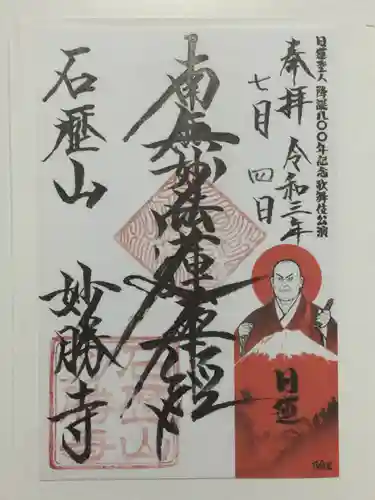 日蓮聖人 降誕八〇〇年記念歌舞伎公演
奉拝 令和三年
七月四日
南無妙法蓮華經
石歴山
妙勝寺
日蓮